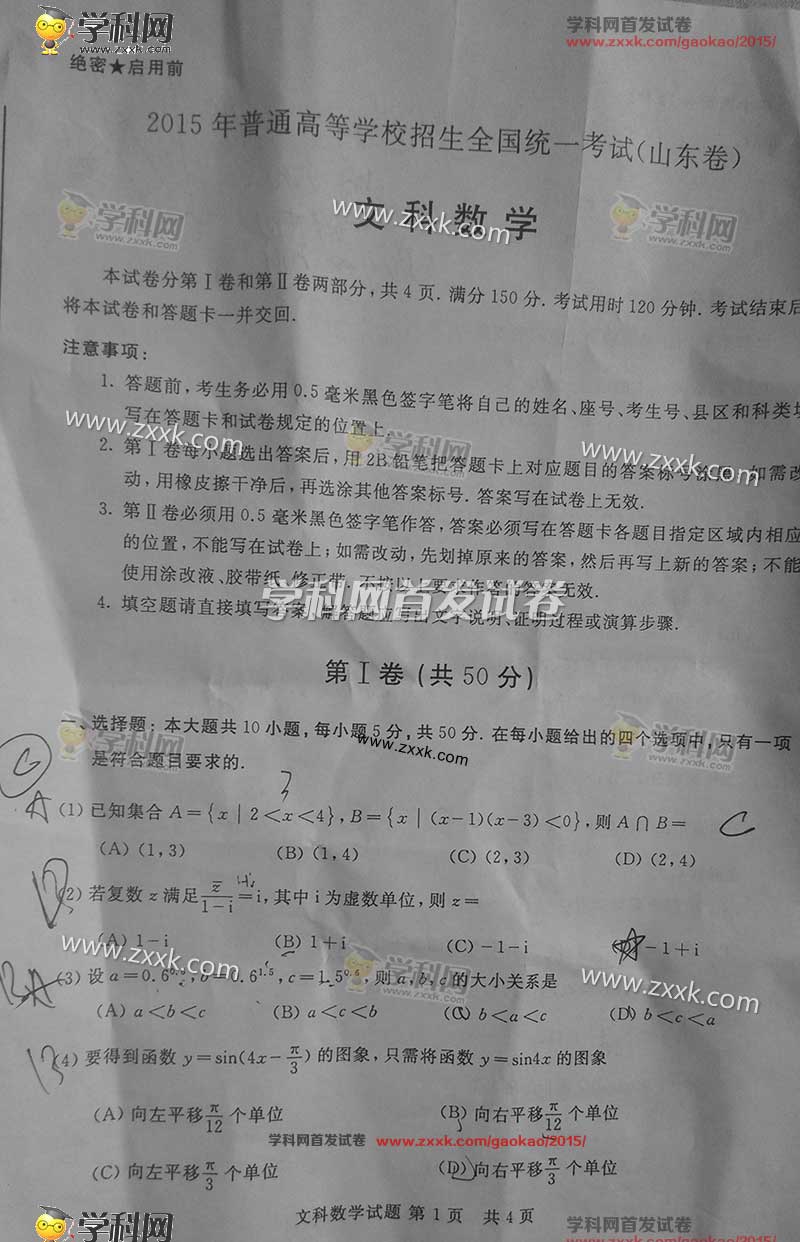 学科网
www.zxxk.com
学科网首发试卷
www.zxxk.com/gaokao/2015/
绝密★启用前
2015 年普通高等学校招生全国统一考试(山东卷)
学科网
www.zxxk.com
www.zxxk.com
学科网
www.zxxk.com
文科数学
本试卷分第Ⅰ卷和第Ⅱ卷两部分,共 4 页. 满分 150 分. 考试用时 120 分钟. 考试结束后
将本试卷和答题卡一并交回.
注意事项:
1. 答题前,考生务必用 0.5 毫米黑色签字笔将自己的姓名、座号、考生号、县区和科类填
写在答题卡和试卷规定的位置上.
www.zxxk.com
学科网
www.zxxk.com
2. 第Ⅰ卷每小题选出答案后,用 2B 铅笔把答题卡上对应题目的答案标号涂黑;如需改
动,用橡皮擦干净后,再选涂其他答案标号. 答案写在试卷上无效.
3. 第Ⅱ卷必须用 0.5 毫米黑色签字笔作答,答案必须写在答题卡各题目指定区域内相应
的位置,不能写在试卷上;如需改动,先划掉原来的答案,然后再写上新的答案;不能
使用涂改液、胶带纸、修正带.不按以上要求作答的答案无效.
学科网首发试卷
4. 填空题请直接填写答案,解答题应写出文字说明、证明过程或演算步骤.
第Ⅰ卷 (共 50 分)
一、选择题:本大题共 10 小题,每小题 5 分,共 50 分. 在每小题给出的四个选项中,只有一项
是符合题目要求的.
学科网
www.zxxk.com
www.zxxk.com
学科网
www.zxxk.com
A (1) 已知集合 A={x | 2<x<4},B={x | (x-1)(x-3)<0},则 A∩B= C
(A) (1,3) (B) (1,4) (C) (2,3) (D) (2,4)
(2) 若复数 z 满足 z̅/(1-i)=i,其中 i 为虚数单位,则 z=
(A) 1-i (B) 1+i (C) -1-i -1+i
www.zxxk.com
学科网
www.zxxk.com
www.zxxk.com
(3) 设 a=0.6^0.6,b=0.6^1.5,c=1.5^0.6,则 a,b,c 的大小关系是
(A) a<b<c (B) a<c<b (C) b<a<c (D) b<c<a
(4) 要得到函数 y=sin(4x-π/3) 的图象,只需将函数 y=sin4x 的图象
(A) 向左平移 π/12 个单位 (B) 向右平移 π/12 个单位
学科网首发试卷 www.zxxk.com/gaokao/2015/
(C) 向左平移 π/3 个单位 (D) 向右平移 π/3 个单位
文科数学试题 第 1 页 共 4 页
学科网
www.zxxk.com
学科网首发试卷
www.zxxk.com/gaokao/2015/